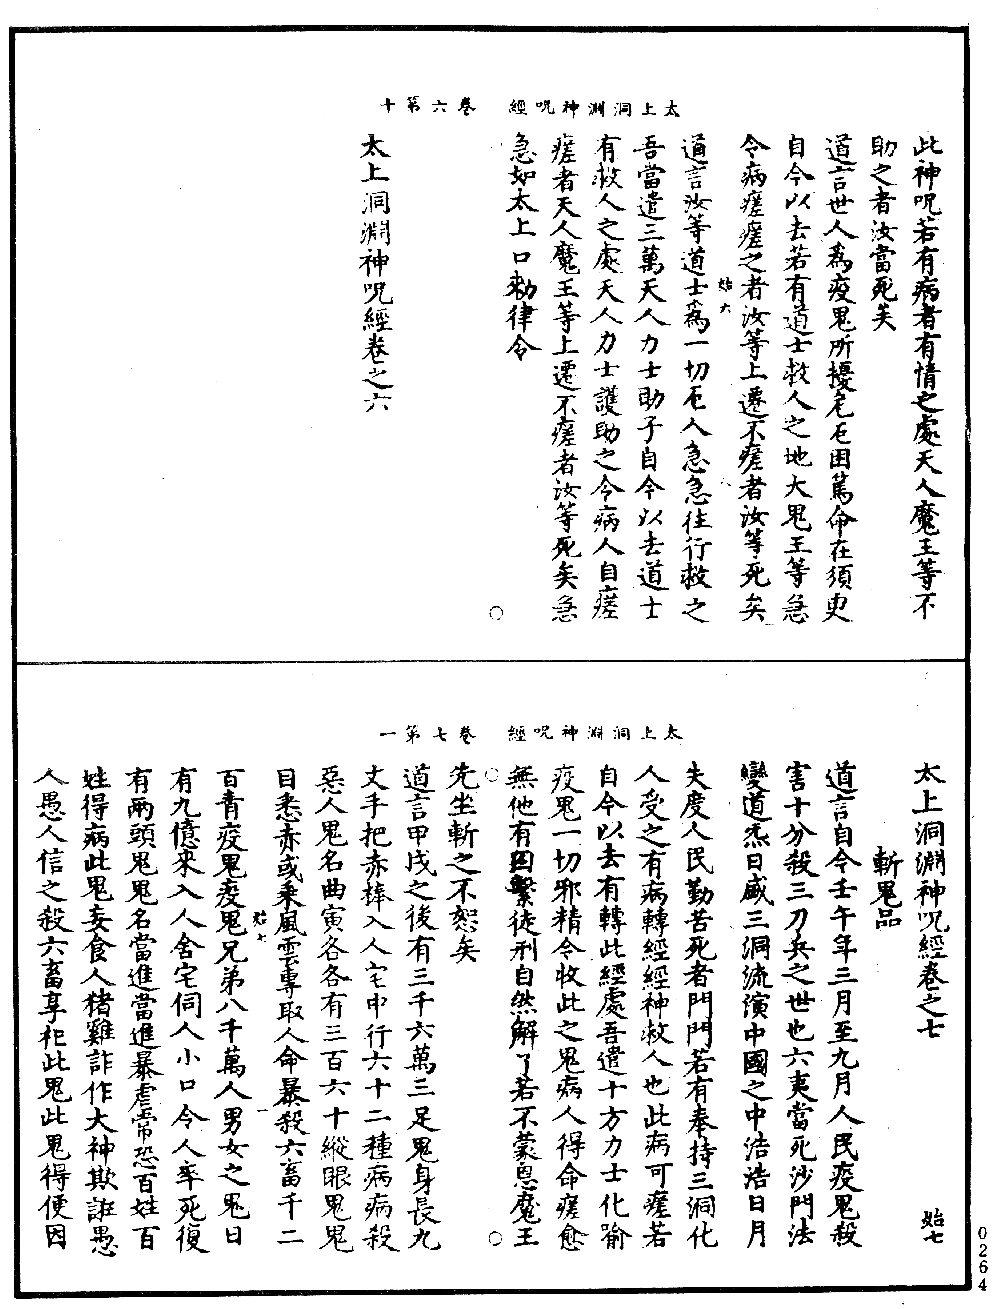 太上洞淵神呪經　卷六第十
此神呪若有病者有情之處天人魔王等不
助之者汝當死矣
道言世人為疫鬼所擾厄厄困篤命在須臾
自今以去若有道士救人之地大鬼王等急
令病瘥瘥之者汝等上遷不瘥者汝等死矣
始六
道言汝等道士為一切厄人急急往行救之
吾當遣三萬天人力士助子自今以去道士
有救人之處天人力士護助之令病人自瘥
瘥者天人魔王等上遷不瘥者汝等死矣急
急如太上口勑律令
太上洞淵神呪經卷之六
太上洞淵神呪經　卷七第一
太上洞淵神呪經卷之七　始七
斬鬼品
道言自今壬午年三月至九月人民疫鬼殺
害十分殺三刀兵之世也六夷當死沙門法
變道炁日盛三洞流演中國之中浩浩日月
失度人民勤苦死者門門若有奉持三洞化
人受之有病轉經經神救人也此病可瘥若
自今以去有轉此經處吾遣十方力士化喻
疫鬼一切邪精令收此之鬼病人得命瘥愈
無他有囚繫徒刑自然解了若不蒙恩魔王
先坐斬之不恕矣
道言甲戌之後有三千六萬三足鬼身長九
丈手把赤棒入人宅中行六十二種病病殺
惡人鬼名曲寅各各有三百六十縱眼鬼鬼
目悉赤或乘風雲專取人命暴殺六畜千二
始七
百青疫鬼疫鬼兄弟八千萬人男女之鬼日
有九億來入人舍宅伺人小口令人卒死復
有兩頭鬼鬼名當進當進暴虐常恐百姓百
姓得病此鬼妄食人猪雞詐作大神欺誑愚
人愚人信之殺六畜享祀此鬼此鬼得便因
0264